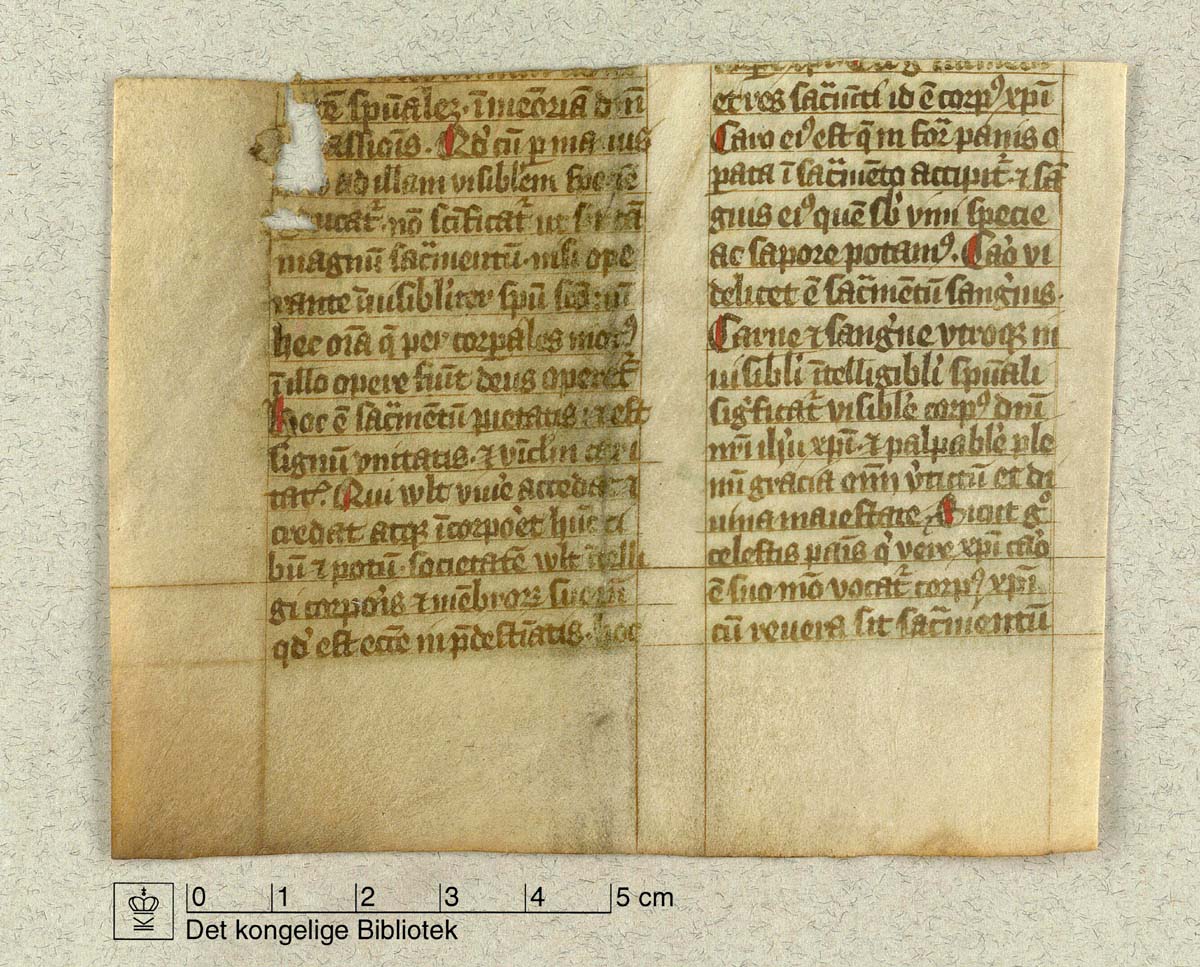 tē spūalez · ī meoriā dnī
assionis . Qd' cū p manus
ad illam visiblem speciē
ducat᷑ · nō scīficat᷑ ut sit tā
magnū sac̄mentū · nisi ope
rante īuisiblit̓er spū scō · nā
hec oīa q̄ per corp̄ales motꝰ
ī illo opere fiūt deus operet᷑
Hoc ē sac̄mētū pietatis ⁊ est
signū vnitatis · ⁊ vīclm cari
tatꝭ Qui wlt viue̓ accedat ⁊
credat atqꝫ īcorpo̓et hūc ci
bū ⁊ potū · societatē wlt ītelli
gi corporis ⁊ mēbroꝝ suoꝝ
qd' est ecc̄e in p̄destīatis · hoc
et res sac̄mīti id ē corpꝰ xp̄i
Caro eiꝰ est q̄m for̄ panis o
pata ī sac̄mēto accipit᷑ · ⁊ sā
guis eiꝰ quē sb' vini specie
ac sapore potamꝰ . Caō vi
delicet ē sac̄mētū sang̓uis ·
Carne ⁊ sang̓ne vtroqꝫ in
uisibli ītelligibli spūali
sig̓ficat᷑ visible corpꝰ dnī
nrī ih̓u xp̄i · ⁊ palpable ple
nū gracia omī v̓tutū et di
uina maiestate Sicut g°
celestis panis q' vere xp̄i caō
ē suo mō vocat᷑ corpꝰ xp̄i
cū revera sit sac̄mentū
0 1 2 3 4 5 cm
Det kongelige Bibliotek